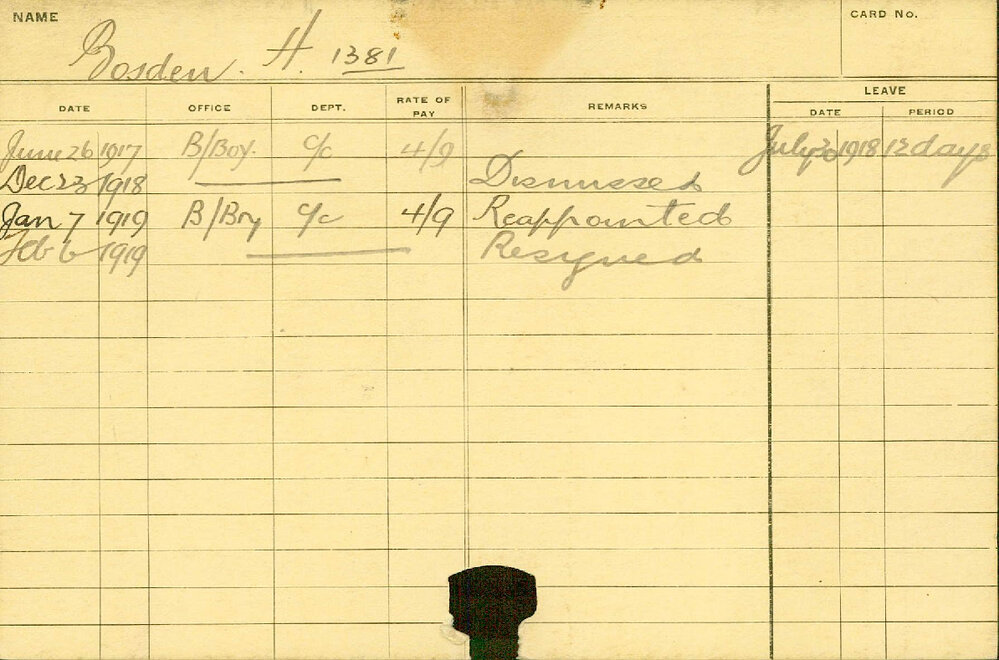 NAME
CARD No.
Bosden. H. 1381
DATE OFFICE DEPT. RATE OF PAY REMARKS LEAVE
DATE PERIOD
June 26 1917 B/Boy. c/c 4/9 July 1918 12 days
Dec 23 1918 Dismissed
Jan 7 1919 B/Boy c/c 4/9 Reappointed
Feb 6 1919 Resigned